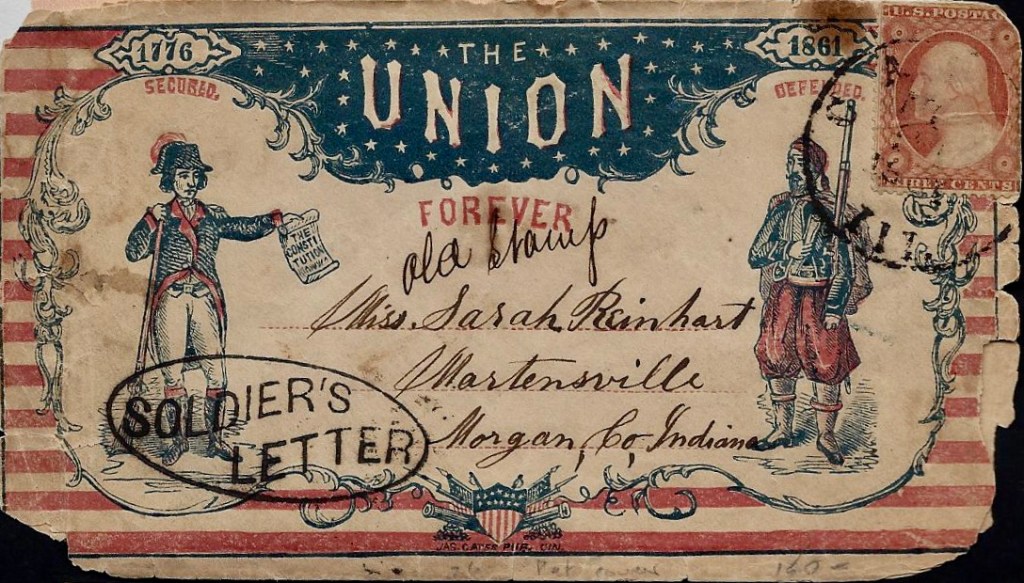 1776
THE
1861
U.S. POSTAGE
SECURED.
UNION
DEFENDED.
THREE CENTS
FOREVER
old stamp
ILL.
THE
CONSTI
TUTION
Miss. Sarah Reinhart
Martensville
Morgan, Co, Indiana
SOLDIER'S
LETTER
JAS. GATES PUB. CIN.
160-